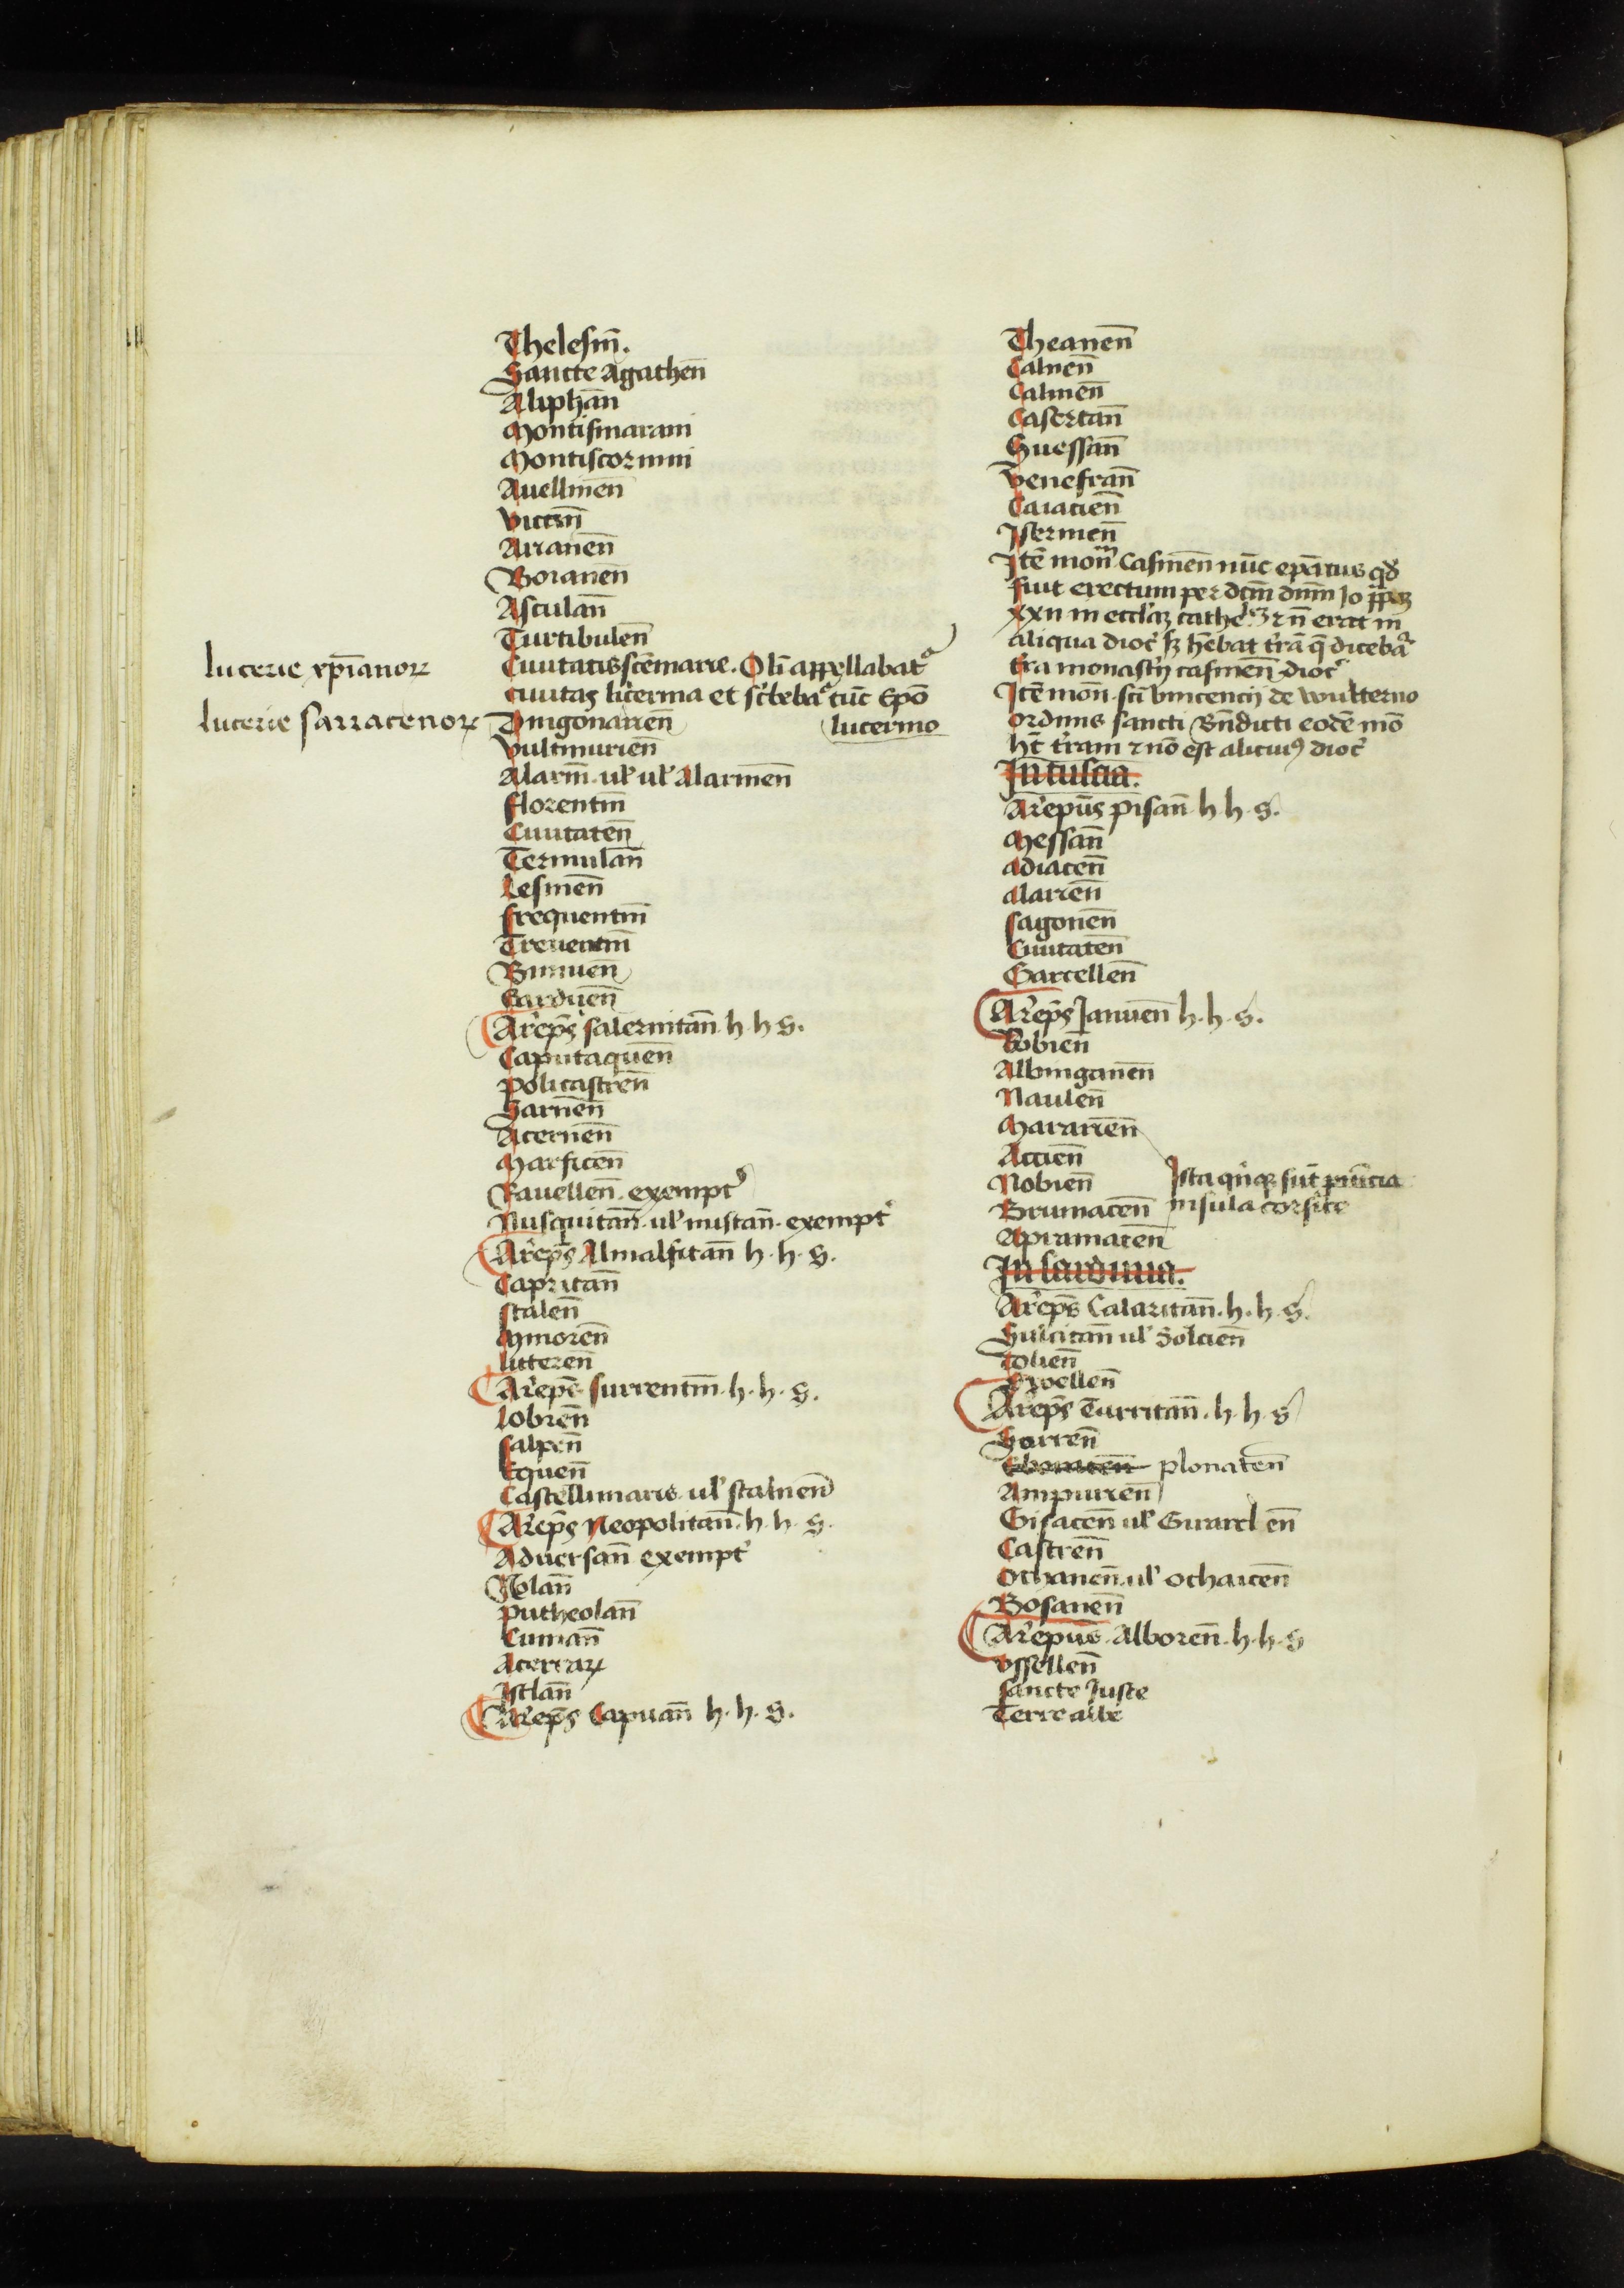 Thelesin̄.
Sancte Agathen̄
Aliphan̄
Montismarani
Montiscoruini
Auellinen̄
Vicen̄
Arianen̄
Boianen̄
Asculan̄
Turtibulen̄
lucerie xp̄ianoꝝ
Ciuitatis sc̄e marie. Oli appellabat᷑
ciuitas lucerina et sc̄beba᷑ tūc Ep̄o
lucerino
lucerie sarracenoꝝ
Dragonarien̄
Vulturinen̄
Alarin̄. ul' ul' Alarinen̄
florentin̄
Ciuitaten̄
Termulan̄
Lesinen̄
frequentin̄
Treuentin̄
Biminen̄
Garduen̄
Ar̄ep̄s salernitan̄ h h S.
Caputaquen̄
policastren̄
Sarnen̄
Acernen̄
Marsicen̄
Rauellen̄. exempt᷑
Nusquitan̄. ul' nustan̄. exempt᷑
Ar̄ep̄s Almalfitan̄ h. h. S.
Capritan̄
Scalen̄
Minoren̄
litteren̄
Ar̄ep̄s surrentin̄. h. h. S.
lobren̄
salpen̄
Equen̄
Castellimaris. ul' stabien̄
Ar̄ep̄s Neopolitan̄. h. h. S.
Aduersan̄ exempt᷑
Nolan̄
putheolan̄
Cuman̄
Acerraꝝ
Isclan̄
Ar̄ep̄s Capuan̄ h. h. S.
Theanen̄
Caluen̄
Calinen̄
Casertan̄
Suessan̄
Venefran̄
Caiacien̄
Isernien̄
Itē mon̄ Casinen̄ nūc ep̄atus qd̄
fuit erectum per dcm̄ dnm̄ Jo ppaꝫ
xxii in eccl'iaꝫ cathe'lꝫ ⁊ n̄ erat in
aliqua dioc᷑ sꝫ hēbat tr̄ā q̄ diceba᷑
tr̄a monastīj casinen̄. dioc᷑
Itē mon̄. sc̄i vincencij de wulterno
ordinis sancti Bn̄dicti eodē mō
ht̄ tr̄am ⁊ nō est alicuiꝰ dioc᷑
In tuscia.
Ar̄ep̄us pisan̄. h h. S.
Messan̄
Adiacen̄
Alarien̄
Sagonen̄
Ciuitaten̄
Garcellen̄
Ar̄ep̄s Januen̄ h. h. S.
Bobien̄
Albinganen̄
Naulen̄
Mararien̄
Accien̄
Nobien̄
Ista qn̄qꝫ sūt ꝓuīcia
Brumacen̄
insula corsice
Apramacen̄
In sardinia.
Ar̄ep̄s Calaritan̄. h. h. S.
Sulcitan̄ ul' Solcien̄
Dolien̄
Suellen̄
Ar̄ep̄s Turritan̄. h. h. S
Sorren̄
plonacen̄
Ampuren̄
Gisacen̄ ul' Girarclen̄
Castren̄
Othanen̄. ul' othaicen̄
Bosanen̄
Ar̄ep̄us. Alboren̄. h. h. S
Vssellen̄
sancte Juste
Terre albe